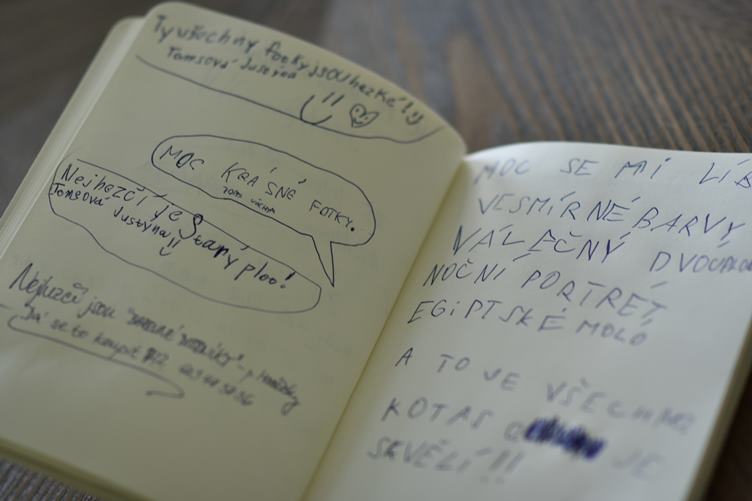 Ty všechny fotky jsou hezké!!
Tomsová Justýna
!!
MOC KRÁSNÉ FOTKY.
Nejhezčí je Starý plot!
Tomsová Justýna!!
Nejhezčí jsou
Dá se to koupit
MOC SE MI LÍB
VESMÍRNÉ BARVY
VÁLEČNÝ
NOČNÍ PORTRÉT
EGIPTSKÉ MOLO
A TO JE VŠECHNO
KOTAS JE
SKVĚLÍ!!